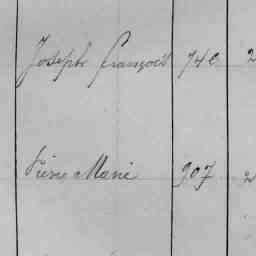 Joseph françois 740 2
Pierre Marie 907 2